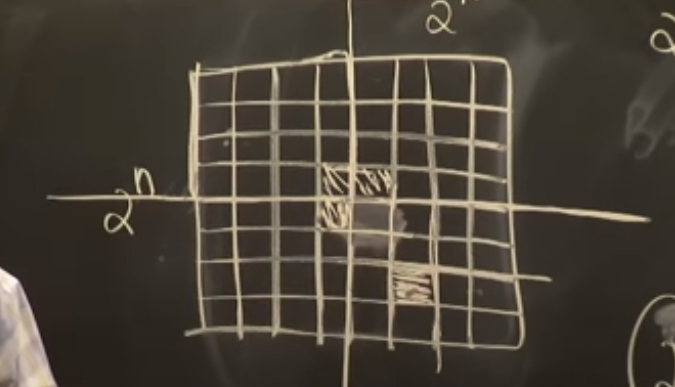 2ⁿ
2ⁿ